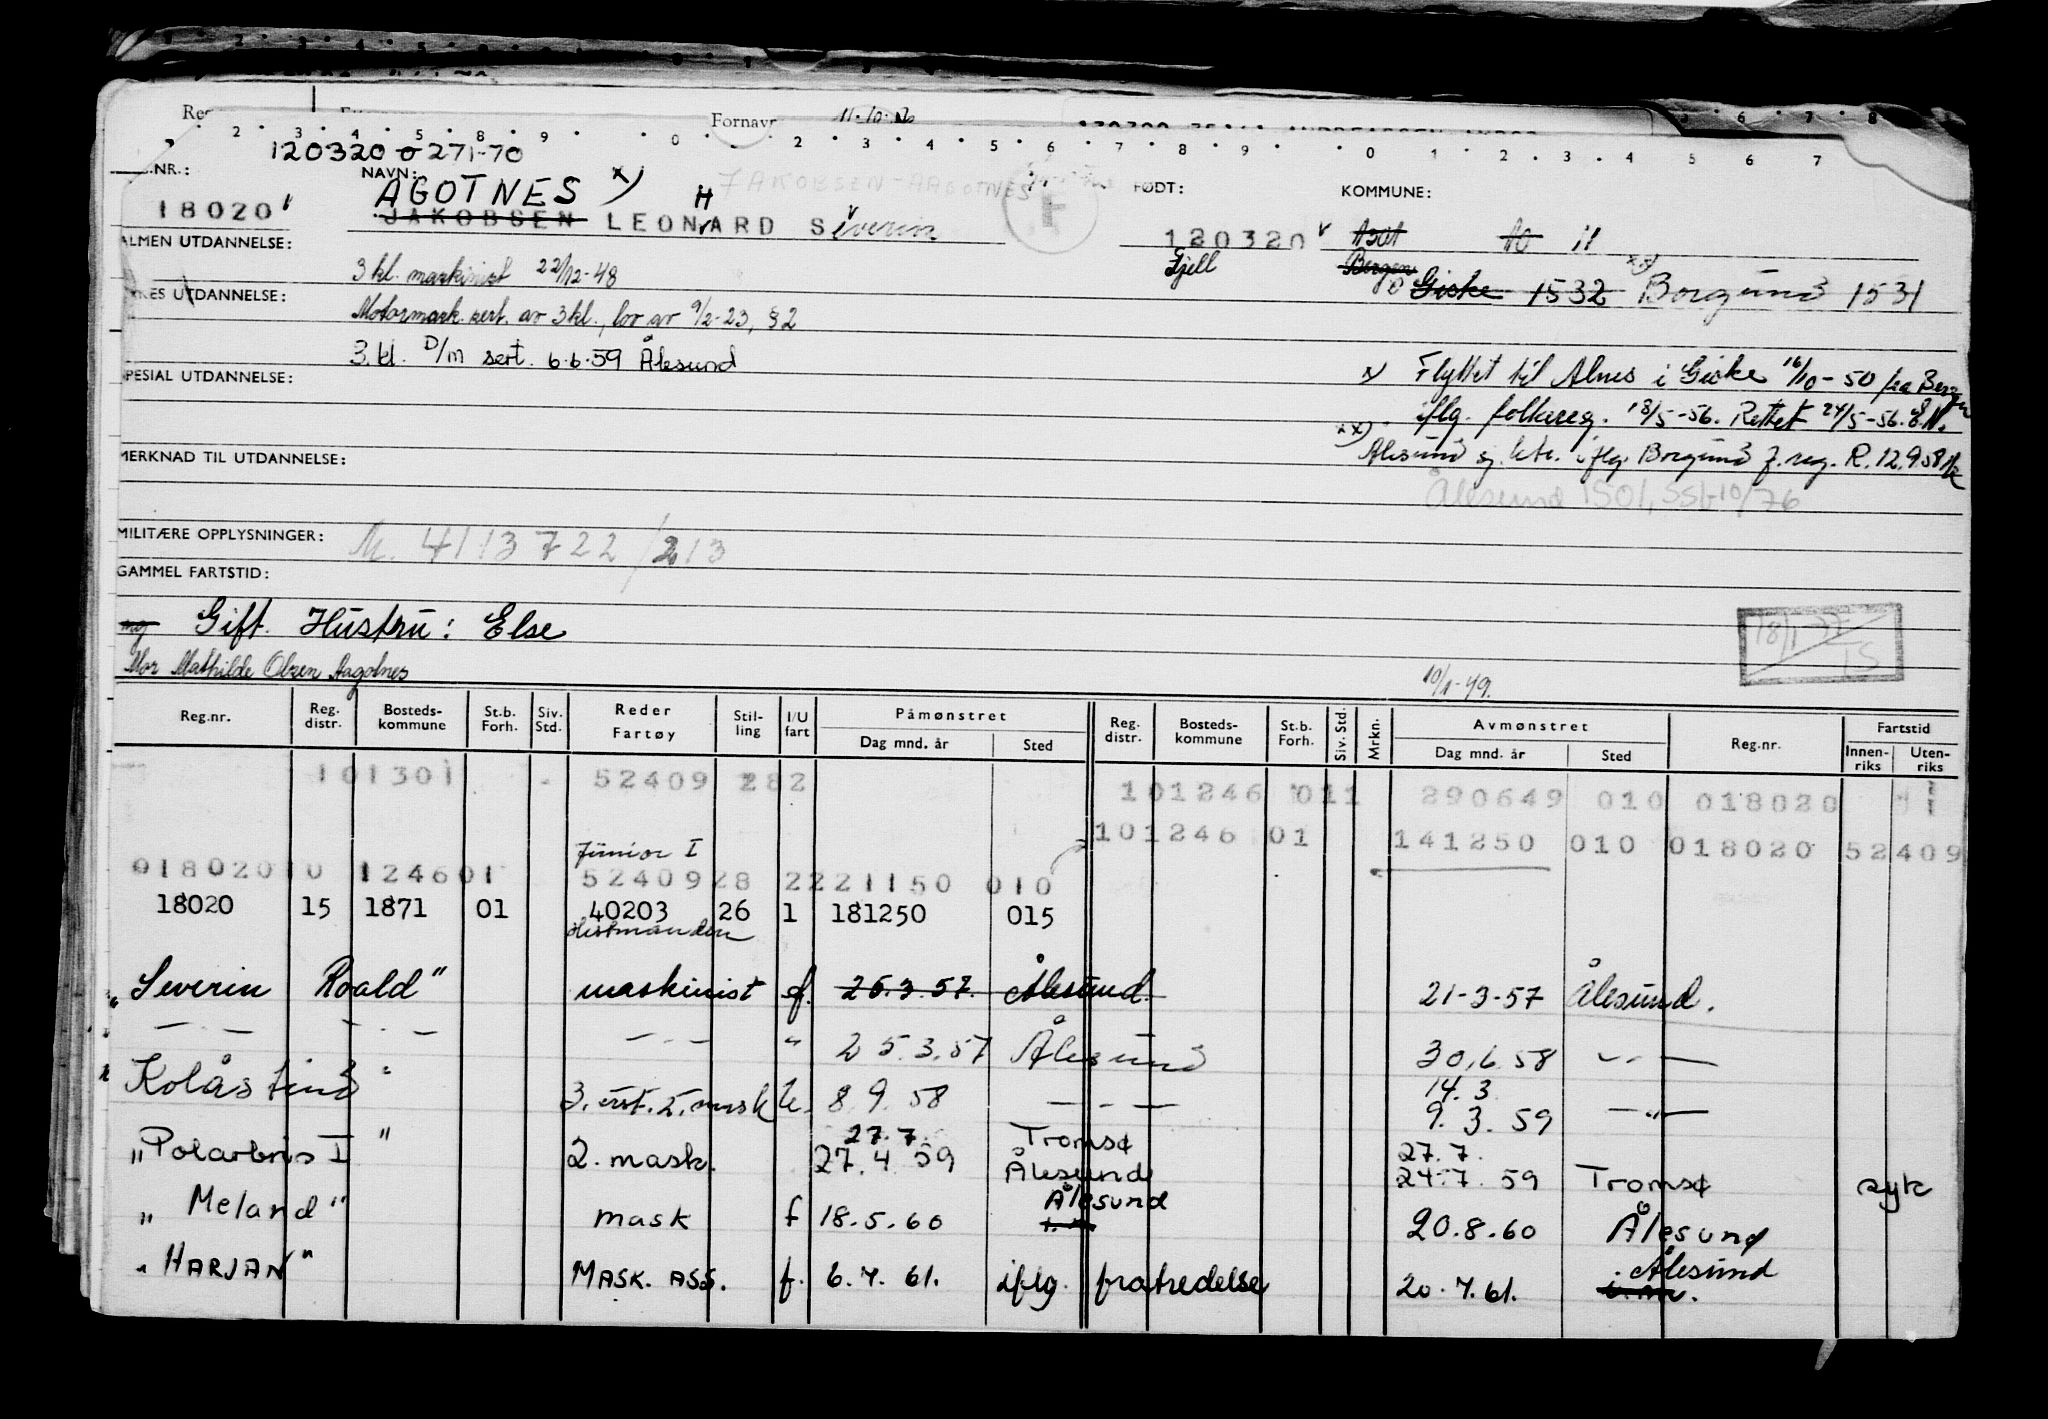 Fornavn
11.10.
2 3 4 5 8 9 0 2 3 4 5 6 7 8 9 0 1 2 3 4 5 6 7
120320 271-70
NR.: NAVN: FØDT: KOMMUNE:
AGOTNES x) JAKOBSEN-AAGOTNES
18020 JAKOBSEN LEONHARD Siverin 120320 1301 10 11
ALMEN UTDANNELSE:
Fjell Bergen
3 kl. maskinist 22/12-48
Giske 1532 xx) Borgund 1531
YRKES UTDANNELSE:
Motormask.sert. av 3 kl., lov av 9/2-23, §2
3. kl. D/m sert. 6.6.59 Ålesund
SPESIAL UTDANNELSE:
x) Flyttet til Alnes i Giske 16/10-50 fra Bergen
iflg. folkereg. 18/5-56. Rettet 24/5-56.
MERKNAD TIL UTDANNELSE:
xx) Ålesund sj. ktr. iflg. Borgund f.reg. R. 12.9.58
Ålesund 1501, 10/76
MILITÆRE OPPLYSNINGER: M. 4113722/213
GAMMEL FARTSTID:
Gift. Hustru: Else
18/1-77
15
Mor Mathilde Olsen Aagotnes
10/1-49.
Reg.nr. Reg. distr. Bosteds-kommune St.b. Forh. Siv. Std. Reder Fartøy Stil-ling I/U fart Påmønstret Dag mnd. år Sted Reg. distr. Bosteds-kommune St.b. Forh. Siv. Std. Mrkn. Avmønstret Dag mnd. år Sted Reg.nr. Fartstid Innen-riks Uten-riks
101301 52409 282 101246 011 290649 010 018020
101246 01 141250 010 018020 52409
Junior I
018020 10 124601 52409 28 2 221150 010
18020 15 1871 01 40203 26 1 181250 015
Hestmanden
"Severin Roald" maskinist f. 26.3.57. Ålesund 21-3-57 Ålesund.
" — - — - — - — " 25.3.57 Ålesund 30.6.58 — " —
14.3
"Kolåstind" 8.9.58 — " — 9.3.59 — " —
27.7. Tromsø 27.7.
"Polarbris I" 2. mask. 27.4 59 Ålesund 24.7.59 Tromsø syk
"Meland" mask f 18.5.60 Ålesund 20.8.60 Ålesund
"HARJAN" MASK. ASS. f. 6.7.61. iflg. fratredelse 20.7.61. Ålesund